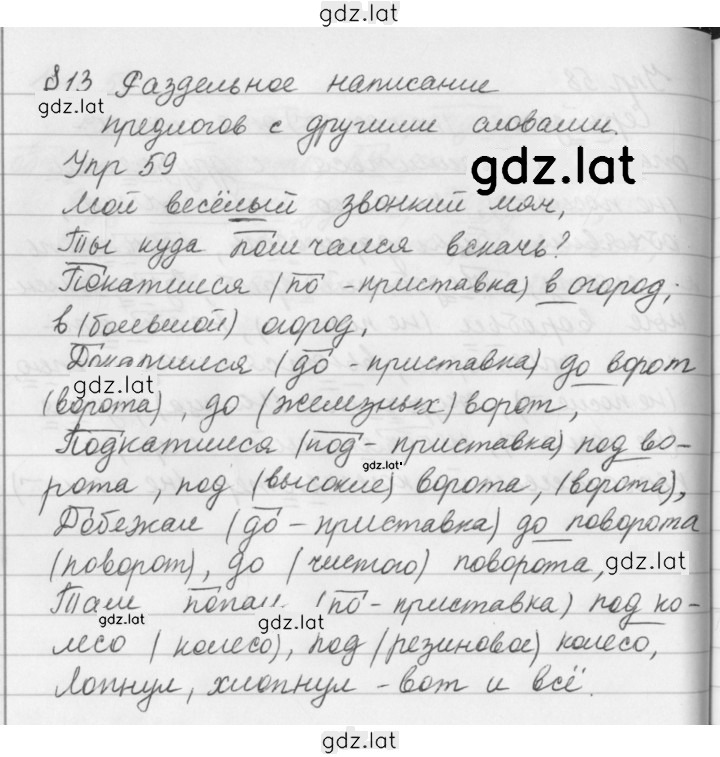 gdz.lat
§13 Раздельное написание
gdz.lat
предлогов с другими словами.
gdz.lat
Упр 59
Мой весёлый звонкий мяч,
Ты куда помчался вскачь?
Покатился (по - приставка) в огород,
в (большой) огород,
Докатился (до - приставка) до ворот
gdz.lat
(ворота), до (железных) ворот,
Подкатился (под - приставка) под во-
gdz.lat
рота, под (высокие) ворота, (ворота),
Добежал (до - приставка) до поворота
(поворот), до (чистого) поворота,
gdz.lat
Там попал (по - приставка) под ко-
gdz.lat
gdz.lat
лесо (колесо), под (резиновое) колесо,
Лопнул, хлопнул - вот и всё.
gdz.lat